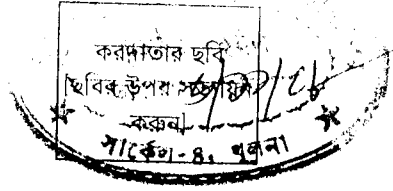 করদাতার ছবি
[ছবির উপর সত্যায়ন
করুন]
সার্কেল-৪, খুলনা